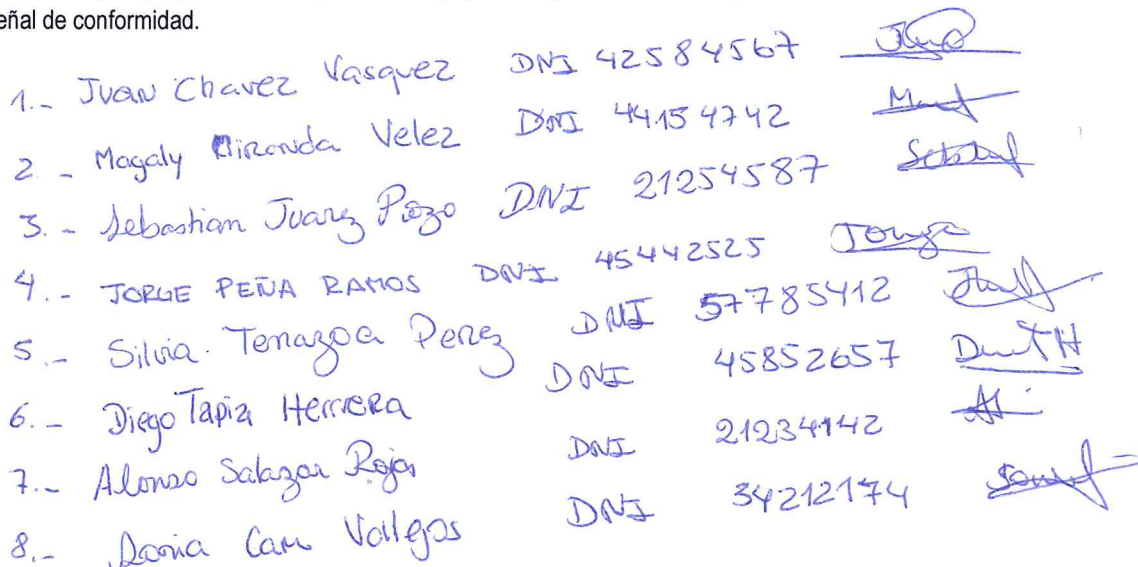 eñal de conformidad.
1.- Juan Chavez Vasquez DNI 42584567
2.- Magaly Miranda Velez DNI 44154742
3.- Sebastian Juarez Pozo DNI 21254587
4.- JORGE PEÑA RAMOS DNI 45442525
5.- Silvia Tenazoa Perez DNI 57785412
6.- Diego Tapia Herrera DNI 45852657
7.- Alonso Salazar Rojas DNI 21234142
8.- Cam Vallegos DNI 34212174